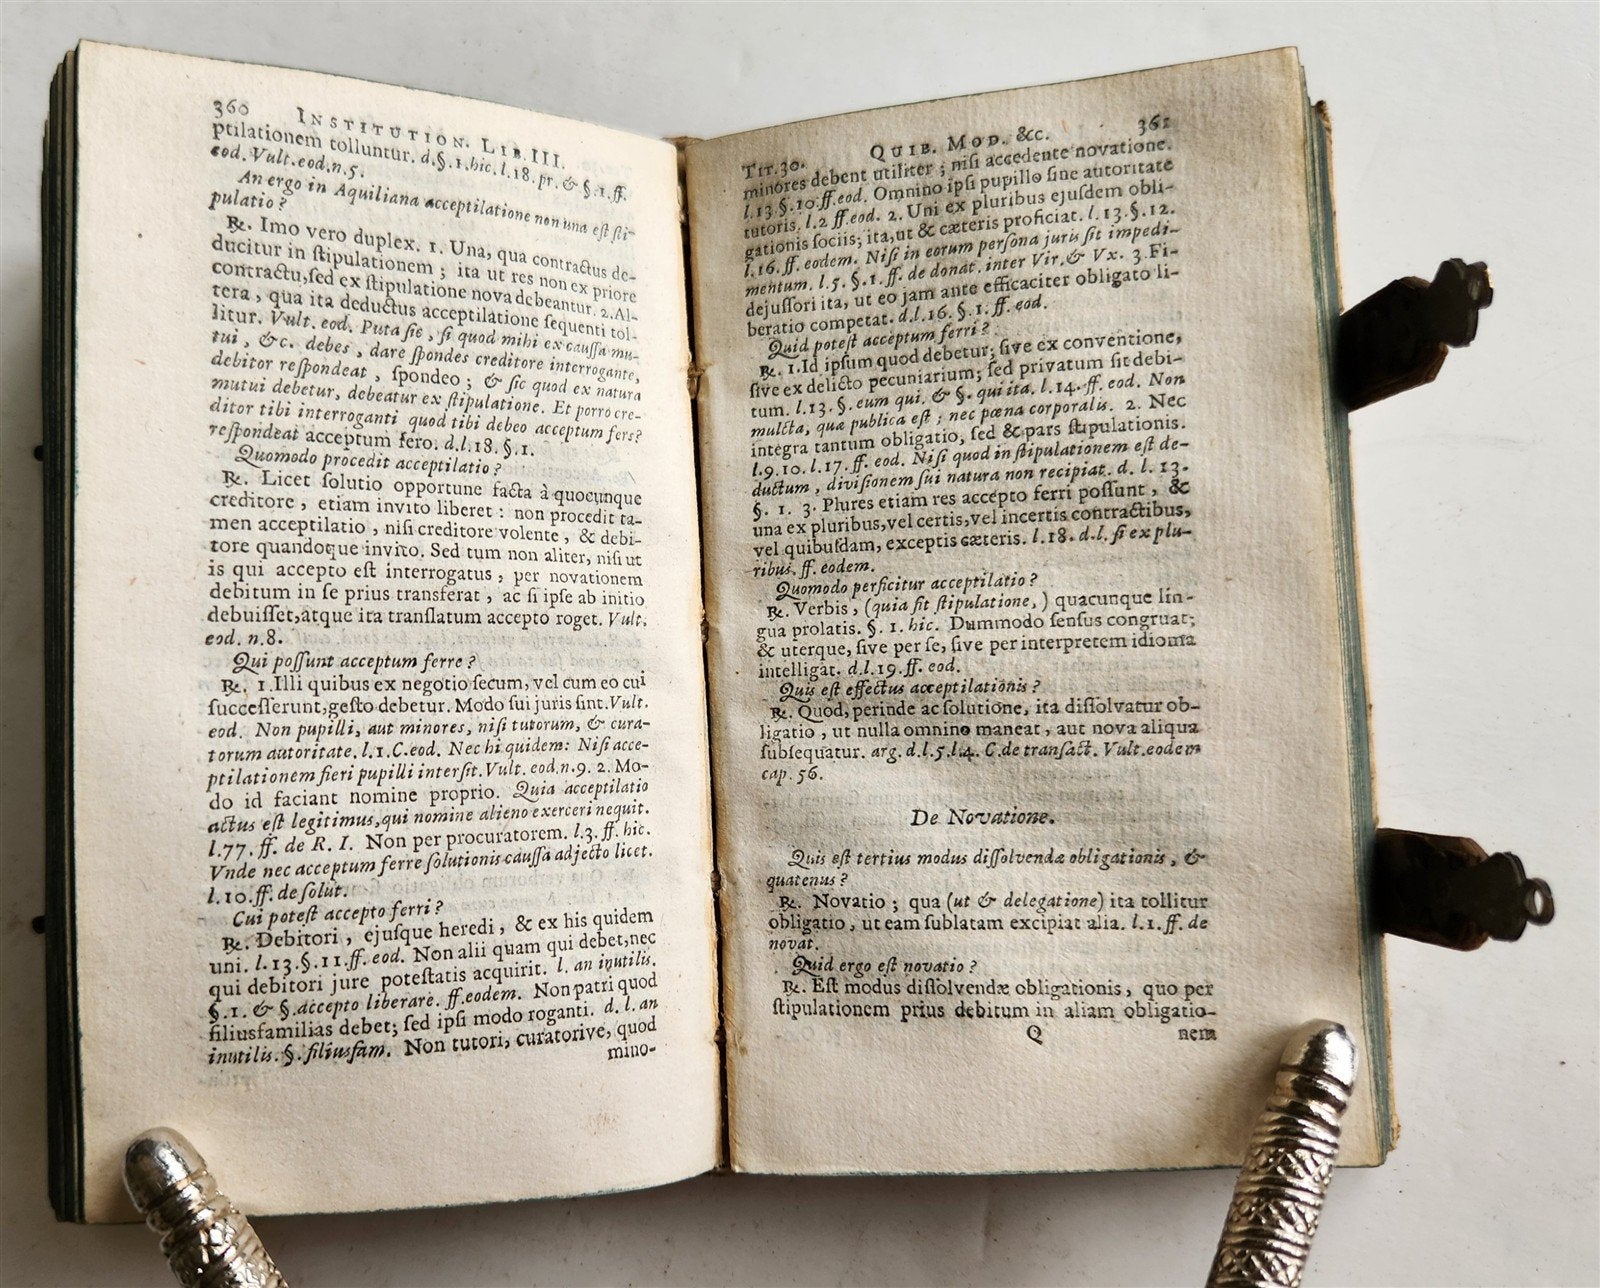 360 INSTITUTION. LIB. III.
ptilationem tolluntur. d. §. 1. hic. l. 18. pr. & §. 1. ff.
eod. Vult. eod. n. 5.
An ergo in Aquiliana acceptilatione non una est sti-
pulatio?
℞. Imo vero duplex. 1. Una, qua contractus de-
ducitur in stipulationem; ita ut res non ex priore
contractu, sed ex stipulatione nova debeantur. 2. Al-
tera, qua ita deductus acceptilatione sequenti tol-
litur. Vult. eod. Puta sic, si quod mihi ex caussa mu-
tui, &c. debes, dare spondes creditore interrogante,
debitor respondeat, spondeo; & sic quod ex natura
mutui debetur, debeatur ex stipulatione. Et porro cre-
ditor tibi interroganti quod tibi debeo acceptum fers?
respondeat acceptum fero. d. l. 18. §. 1.
Quomodo procedit acceptilatio?
℞. Licet solutio opportune facta à quocunque
creditore, etiam invito liberet: non procedit ta-
men acceptilatio, nisi creditore volente, & debi-
tore quandoque invito. Sed tum non aliter, nisi ut
is qui accepto est interrogatus, per novationem
debitum in se prius transferat, ac si ipse ab initio
debuisset, atque ita translatum accepto roget. Vult.
eod. n. 8.
Qui possunt acceptum ferre?
℞. 1. Illi quibus ex negotio secum, vel cum eo cui
successerunt, gesto debetur. Modo sui juris sint. Vult.
eod. Non pupilli, aut minores, nisi tutorum, & cura-
torum autoritate. l. 1. C. eod. Nec hi quidem: Nisi acce-
ptilationem fieri pupilli intersit. Vult. eod. n. 9. 2. Mo-
do id faciant nomine proprio. Quia acceptilatio
actus est legitimus, qui nomine alieno exerceri nequit.
l. 77. ff. de R. I. Non per procuratorem. l. 3. ff. hic.
Vnde nec acceptum ferre solutionis caussa adjecto licet.
l. 10. ff. de solut.
Cui potest accepto ferri?
℞. Debitori, ejusque heredi, & ex his quidem
uni. l. 13. §. 11. ff. eod. Non alii quam qui debet, nec
qui debitori jure potestatis acquirit. l. an inutilis.
§. 1. & §. accepto liberare. ff. eodem. Non patri quod
filiusfamilias debet; sed ipsi modo roganti. d. l. an
inutilis. §. filiusfam. Non tutori, curatorive, quod
mino-
TIT. 30. QUIB. MOD. &c. 361
minores debent utiliter; nisi accedente novatione.
l. 13. §. 10. ff. eod. Omnino ipsi pupillo sine autoritate
tutoris. l. 2 ff. eod. 2. Uni ex pluribus ejusdem obli-
gationis sociis; ita, ut & cæteris proficiat. l. 13. §. 12.
l. 16. ff. eodem. Nisi in eorum persona juris sit impedi-
mentum. l. 5. §. 1. ff. de donat. inter Vir. & Vx. 3. Fi-
dejussori ita, ut eo jam ante efficaciter obligato li-
beratio competat. d. l. 16. §. 1. ff. eod.
Quid potest acceptum ferri?
℞. 1. Id ipsum quod debetur; sive ex conventione,
sive ex delicto pecuniarium; sed privatum sit debi-
tum. l. 13. §. eum qui. & §. qui ita. l. 14. ff. eod. Non
mulcta, quæ publica est; nec pœna corporalis. 2. Nec
integra tantum obligatio, sed & pars stipulationis.
l. 9. 10. l. 17. ff. eod. Nisi quod in stipulationem est de-
ductum, divisionem sui natura non recipiat. d. l. 13.
§. 1. 3. Plures etiam res accepto ferri possunt, &
una ex pluribus, vel certis, vel incertis contractibus,
vel quibusdam, exceptis cæteris. l. 18. d. l. si ex plu-
ribus. ff. eodem.
Quomodo perficitur acceptilatio?
℞. Verbis, (quia fit stipulatione,) quacunque lin-
gua prolatis. §. 1. hic. Dummodo sensus congruat;
& uterque, sive per se, sive per interpretem idioma
intelligat. d. l. 19. ff. eod.
Quis est effectus acceptilationis?
℞. Quod, perinde ac solutione, ita dissolvatur ob-
ligatio, ut nulla omnino maneat, aut nova aliqua
subsequatur. arg. d. l. 5. l. 4. C. de transact. Vult. eodem
cap. 56.
De Novatione.
Quis est tertius modus dissolvendæ obligationis, &
quatenus?
℞. Novatio; qua (ut & delegatione) ita tollitur
obligatio, ut eam sublatam excipiat alia. l. 1. ff. de
novat.
Quid ergo est novatio?
℞. Est modus dissolvendæ obligationis, quo per
stipulationem prius debitum in aliam obligatio-
Q nem